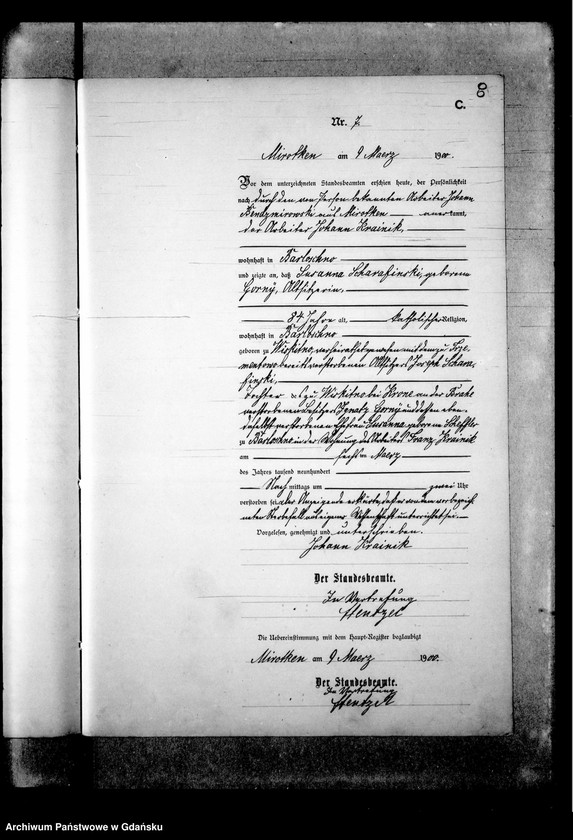 8
C.
Nr. 7.
Mirotken am 9 Maerz 1900.
Vor dem unterzeichneten Standesbeamten erschien heute, der Persönlichkeit
nach durch den von Person bekannten Arbeiter Johann
aus Mirotken anerkannt,
der Arbeiter Johann Krainik,
wohnhaft in Barloschno
und zeigte an, daß Susanna Scharafinski, geborene
Gorny, Altsitzerin,
84 Jahre alt, katholischer Religion,
wohnhaft in Barloschno
geboren zu Wirkitno, verheirathet gewesen mit dem zu
bereits verstorbenen Altsitzer Joseph Schara-
finski,
Tochter des zu Wirkitno bei Krone an der Brahe
verstorbenen Besitzers Ignatz Gorny und dessen eben-
daselbst verstorbenen Ehefrau Susanna, geborene Scheffler
zu Barloschno in der Wohnung des Arbeiters Franz Krainik
am sechsten Maerz
des Jahres tausend neunhundert
Nach mittags um zwei Uhr
verstorben sei, der Anzeigende erklärte, daß er von dem vorbezeich-
neten Sterbefall aus eigener Wissenschaft unterrichtet sei.
Vorgelesen, genehmigt und unterschrieben.
Johann Krainik
Der Standesbeamte.
In Vertretung
Stentzel
Die Uebereinstimmung mit dem Haupt-Register beglaubigt
Mirotken am 9 Maerz 1900.
Der Standesbeamte.
In Vertretung
Stentzel
Archiwum Państwowe w Gdańsku